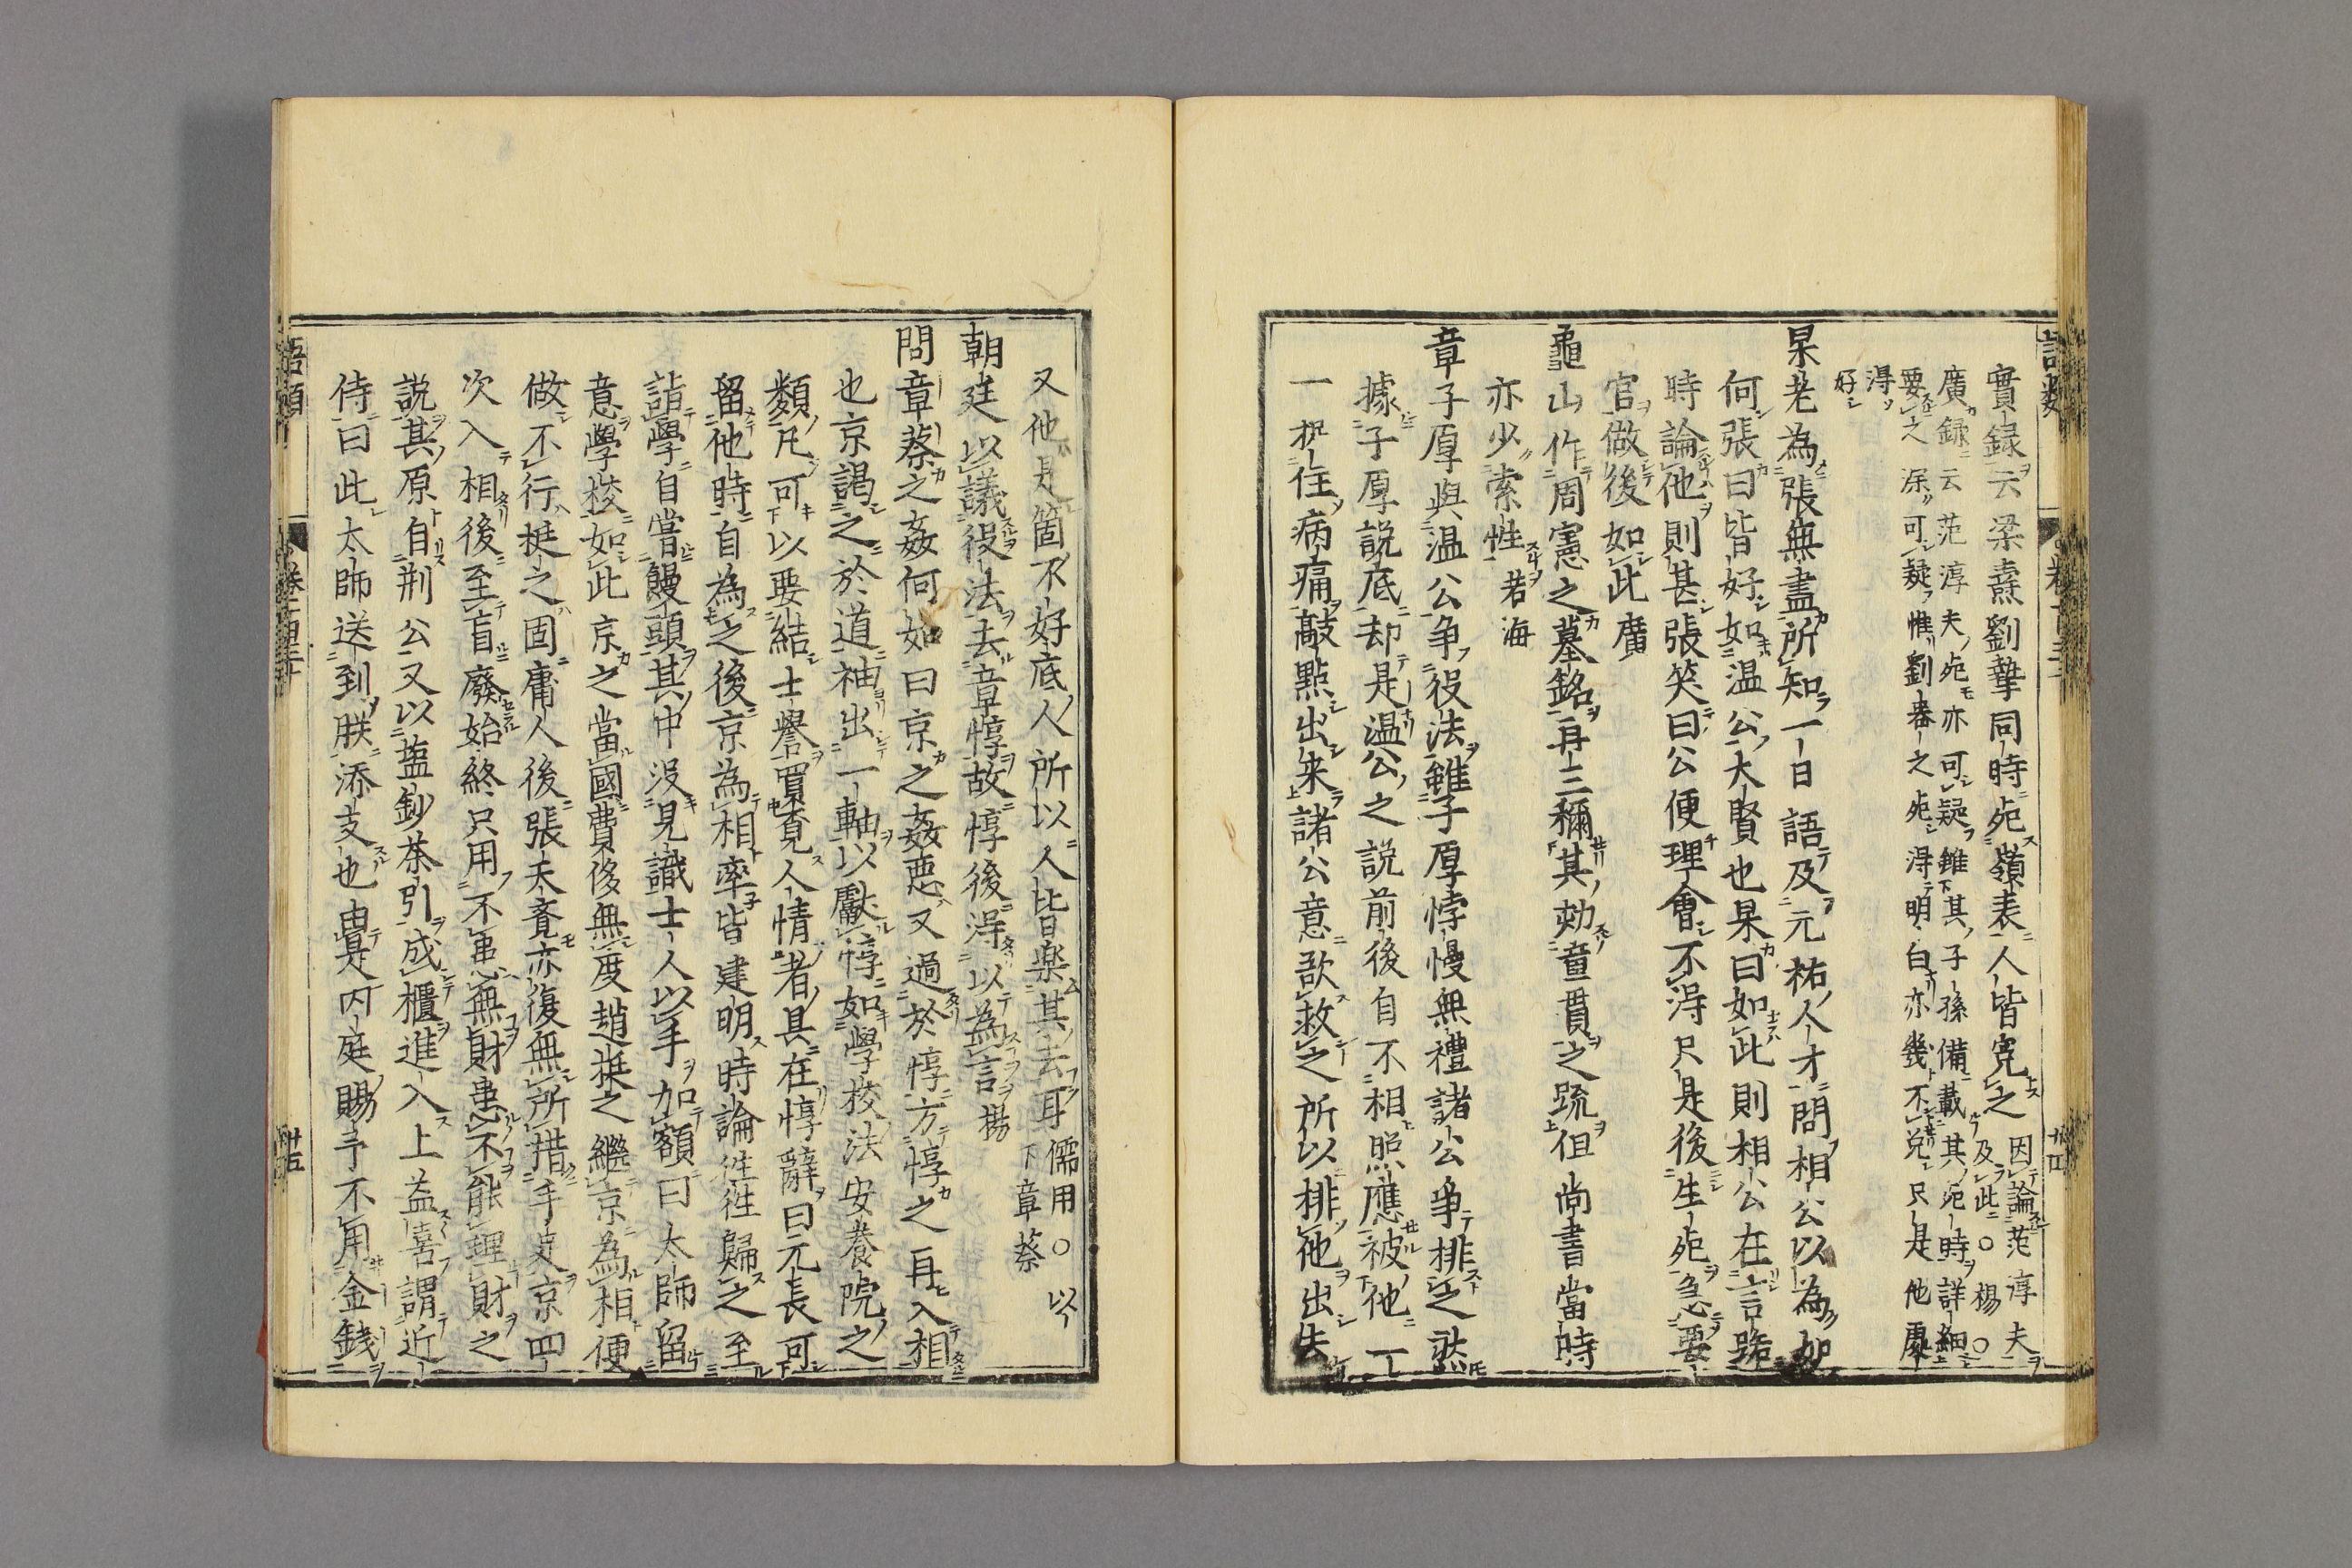 實録云梁燾劉摯同時死嶺表人皆寃之因論范淳夫
及此○楊○
廣録云范淳夫死亦可疑雖其子孫備載其死時詳細
要之深可疑惟劉器之死得明白亦幾不免只是他處
得
好
杲老為張無盡所知一日語及元祐人才問相公以為如
何張曰皆好如温公大賢也杲曰如此則相公在言路
時論他則甚張笑曰公便理會不得只是後生死急要
官做後如此廣
龜山作周憲之墓銘再三稱其劾童貫之疏但尚書當時
亦少索性若海
章子厚與温公争役法雖子厚悖慢無禮諸公爭排之然
據子厚説底却是温公之説前後自不相照應被他一
一捉住病痛敲點出来諸公意欲救之所以排他出去
又他是箇不好底人所以人皆楽其去耳儒用○以
下章蔡
朝廷以議役法去章惇故惇後得以為言楊
問章蔡之姦何如曰京之姦悪又過於惇方惇之再入相
也京謁之於道袖出一軸以獻惇如學校法安養院之
類凡可以要結士譽買覔人情者具在惇辭曰元長可
留他時自為之後京為相率皆建明時論徃徃歸之至
詣學自嘗饅頭其中没見識士人以手加額曰太師留
意學校如此京之當國費侈無度趙挺之繼京為相便
做不行挺之固庸人後張天覺亦復無所措手足京四
次入相後至盲廢始終只用不患無財患不能理財之
説其原自荆公又以鹽鈔茶引成櫃進入上益喜謂近
侍曰此太師送到朕添支也由是内庭賜予不用金錢
語類
卷百三十
廿五
廿四